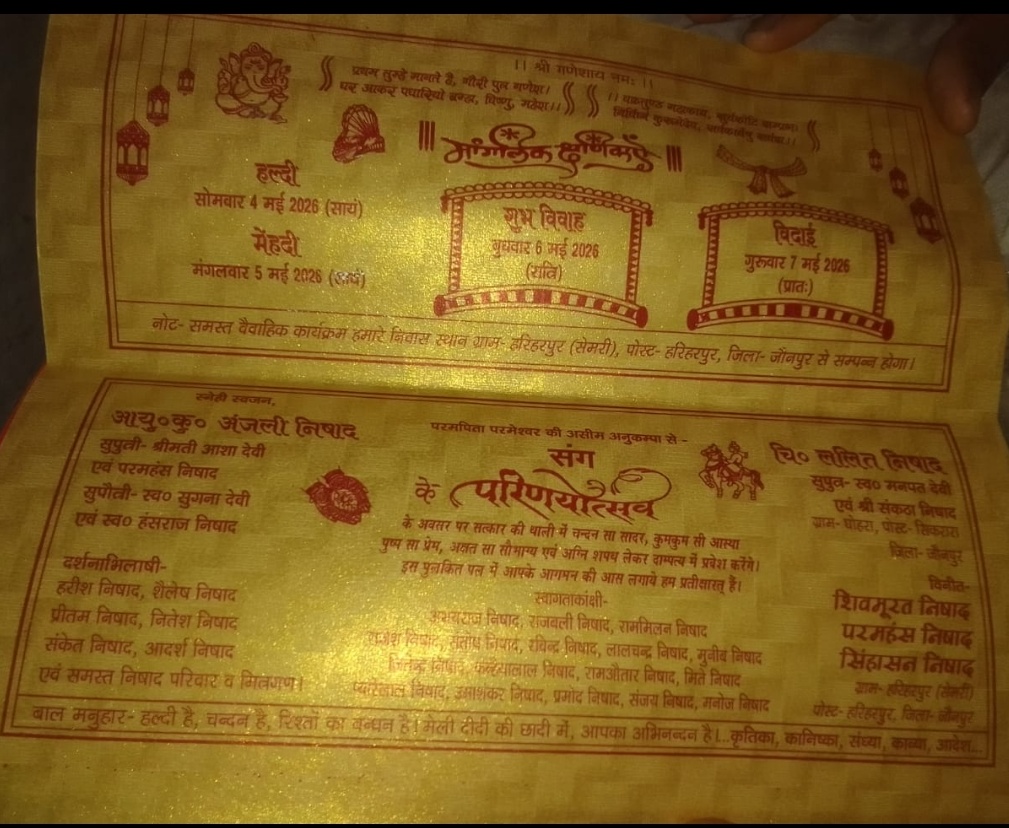 ।। श्री गणेशाय नमः ।।
प्रथम तुम्हे मानाते है, गौरी पुत्र गणेश।
पर आकर पधारियो ब्रम्हा, विष्णु, महेश।।
।। वक्रतुण्ड महाकाय,
मांगलिक क्षणिकाएँ
हल्दी
सोमवार 4 मई 2026 (सायं)
मेंहदी
मंगलवार 5 मई 2026 (सायं)
शुभ विवाह
बुधवार 6 मई 2026
(रात्रि)
विदाई
गुरूवार 7 मई 2026
(प्रातः)
नोट- समस्त वैवाहिक कार्यक्रम हमारे निवास स्थान ग्राम- हरिहरपुर (सेमरी), पोस्ट- हरिहरपुर, जिला- जौनपुर से सम्पन्न होगा।
स्नेही स्वजन,
परमपिता परमेश्वर की असीम अनुकम्पा से -
आयु०कु० अंजली निषाद
सुपुत्री- श्रीमती आशा देवी
एवं परमहंस निषाद
सुपौत्री- स्व० सुगना देवी
एवं स्व० हंसराज निषाद
संग
चि० ललित निषाद
सुपुत्र- स्व० मनपत देवी
एवं श्री संकठा निषाद
पोस्ट- सिकरारा
जिला- जौनपुर
के परिणयोत्सव
के अवसर पर सत्कार की थाली में चन्दन सा सादर, कुमकुम सी आस्था
पुष्प सा प्रेम, अक्षत सा सौभाग्य एवं अग्नि शपथ लेकर दाम्पत्य में प्रवेश करेंगे।
इस पुलकित पल में आपके आगमन की आस लगाये हम प्रतीक्षारत् हैं।
दर्शनाभिलाषी-
हरीश निषाद, शैलेष निषाद
प्रीतम निषाद, नितेश निषाद
संकेत निषाद, आदर्श निषाद
एवं समस्त निषाद परिवार व मित्रगण।
स्वागताकांक्षी-
अभयराज निषाद, राजबली निषाद, राममिलन निषाद
राजेश निषाद, संतोष निषाद, रविन्द्र निषाद, लालचन्द्र निषाद, मुनीब निषाद
निषाद, कन्हैयालाल निषाद, रामऔतार निषाद, निषाद
प्यारेलाल निषाद, उमाशंकर निषाद, प्रमोद निषाद, संजय निषाद, मनोज निषाद
विनीत-
शिवमूरत निषाद
परमहंस निषाद
सिंहासन निषाद
ग्राम- हरिहरपुर (सेमरी)
पोस्ट- हरिहरपुर, जिला- जौनपुर
बाल मनुहार- हल्दी है, चन्दन है, रिश्तों का बन्धन है। मेली दीदी की छादी में, आपका अभिनन्दन है।...कृतिका, कानिष्का, संध्या, काव्या, आदेश...